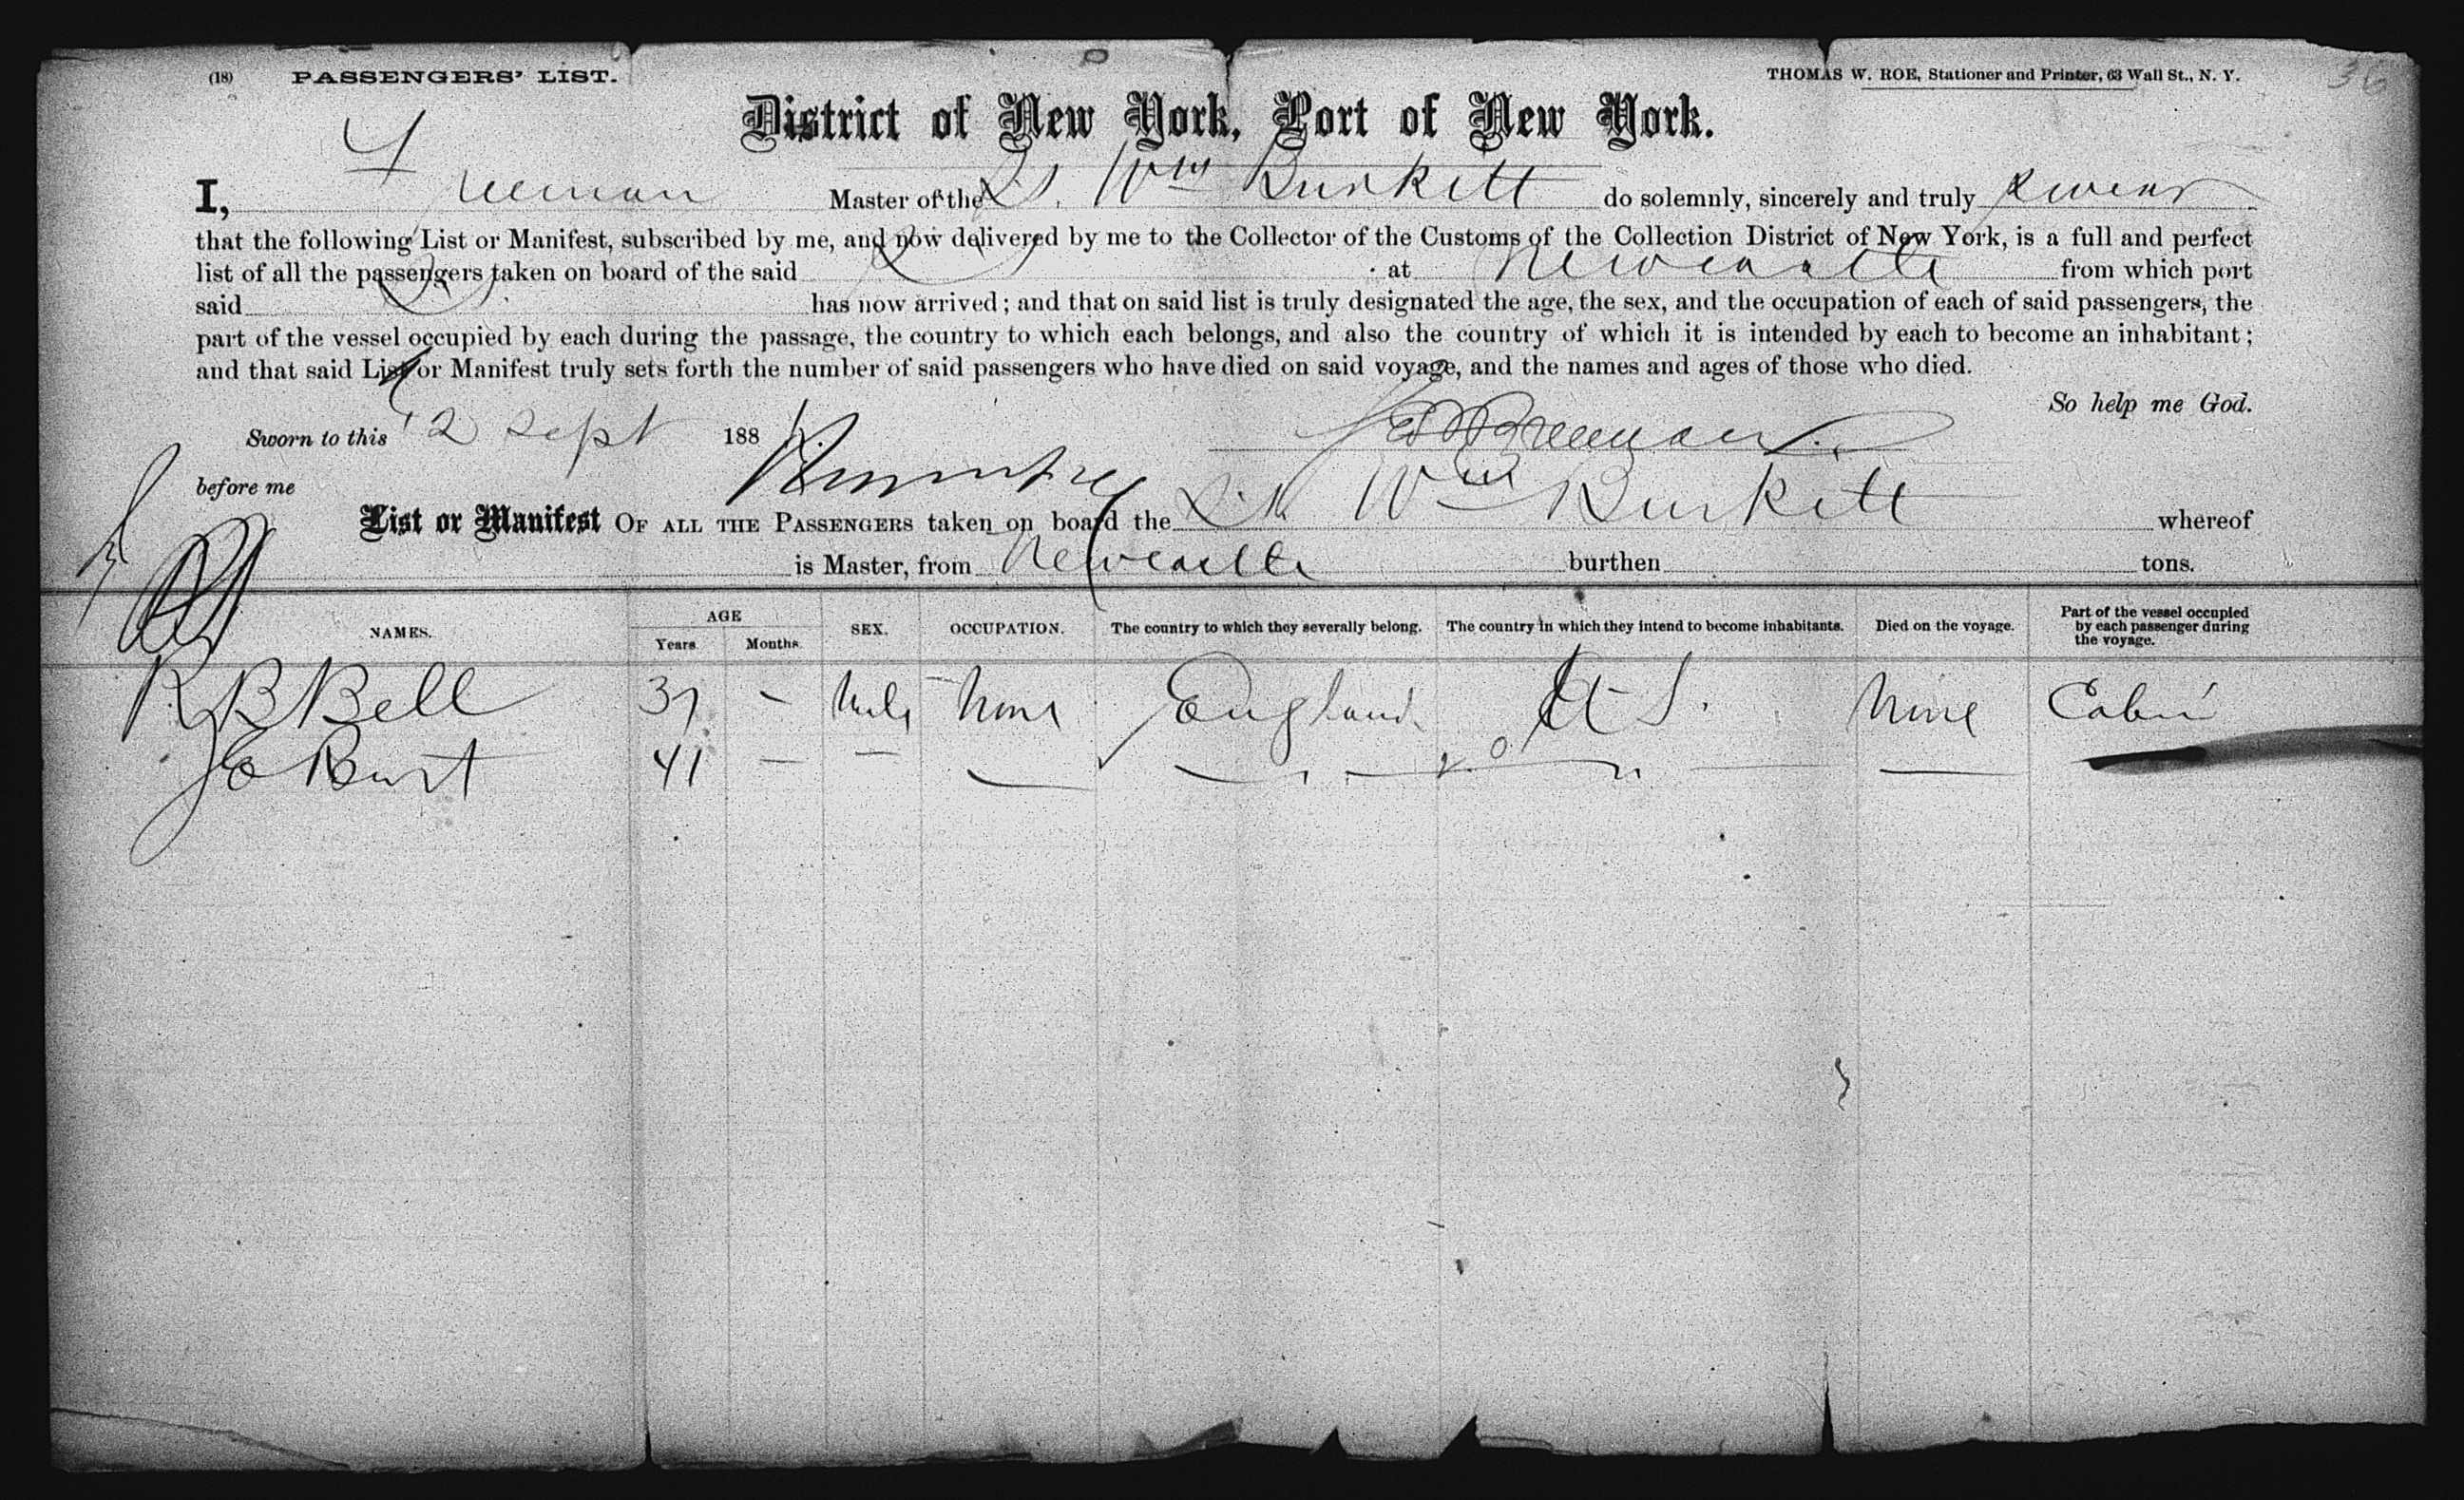 (18) PASSENGERS' LIST. THOMAS W. ROE, Stationer and Printer, 63 Wall St., N. Y. 36
District of New York, Port of New York.
I, Freeman Master of the S.S. Wm Burkitt do solemnly, sincerely and truly swear
that the following List or Manifest, subscribed by me, and now delivered by me to the Collector of the Customs of the Collection District of New York, is a full and perfect
list of all the passengers taken on board of the said at Newcastle from which port
said has now arrived; and that on said list is truly designated the age, the sex, and the occupation of each of said passengers, the
part of the vessel occupied by each during the passage, the country to which each belongs, and also the country of which it is intended by each to become an inhabitant;
and that said List or Manifest truly sets forth the number of said passengers who have died on said voyage, and the names and ages of those who died.
So help me God.
Sworn to this 12 Sept 188 Freeman
before me
List or Manifest OF ALL THE PASSENGERS taken on board the Wm Burkitt whereof
is Master, from Newcastle burthen tons.
NAMES. AGE Years. Months. SEX. OCCUPATION. The country to which they severally belong. The country in which they intend to become inhabitants. Died on the voyage. Part of the vessel occupied by each passenger during the voyage.
R B Bell 37 - Male None England U S. None Cabin
J E Burt 41 —